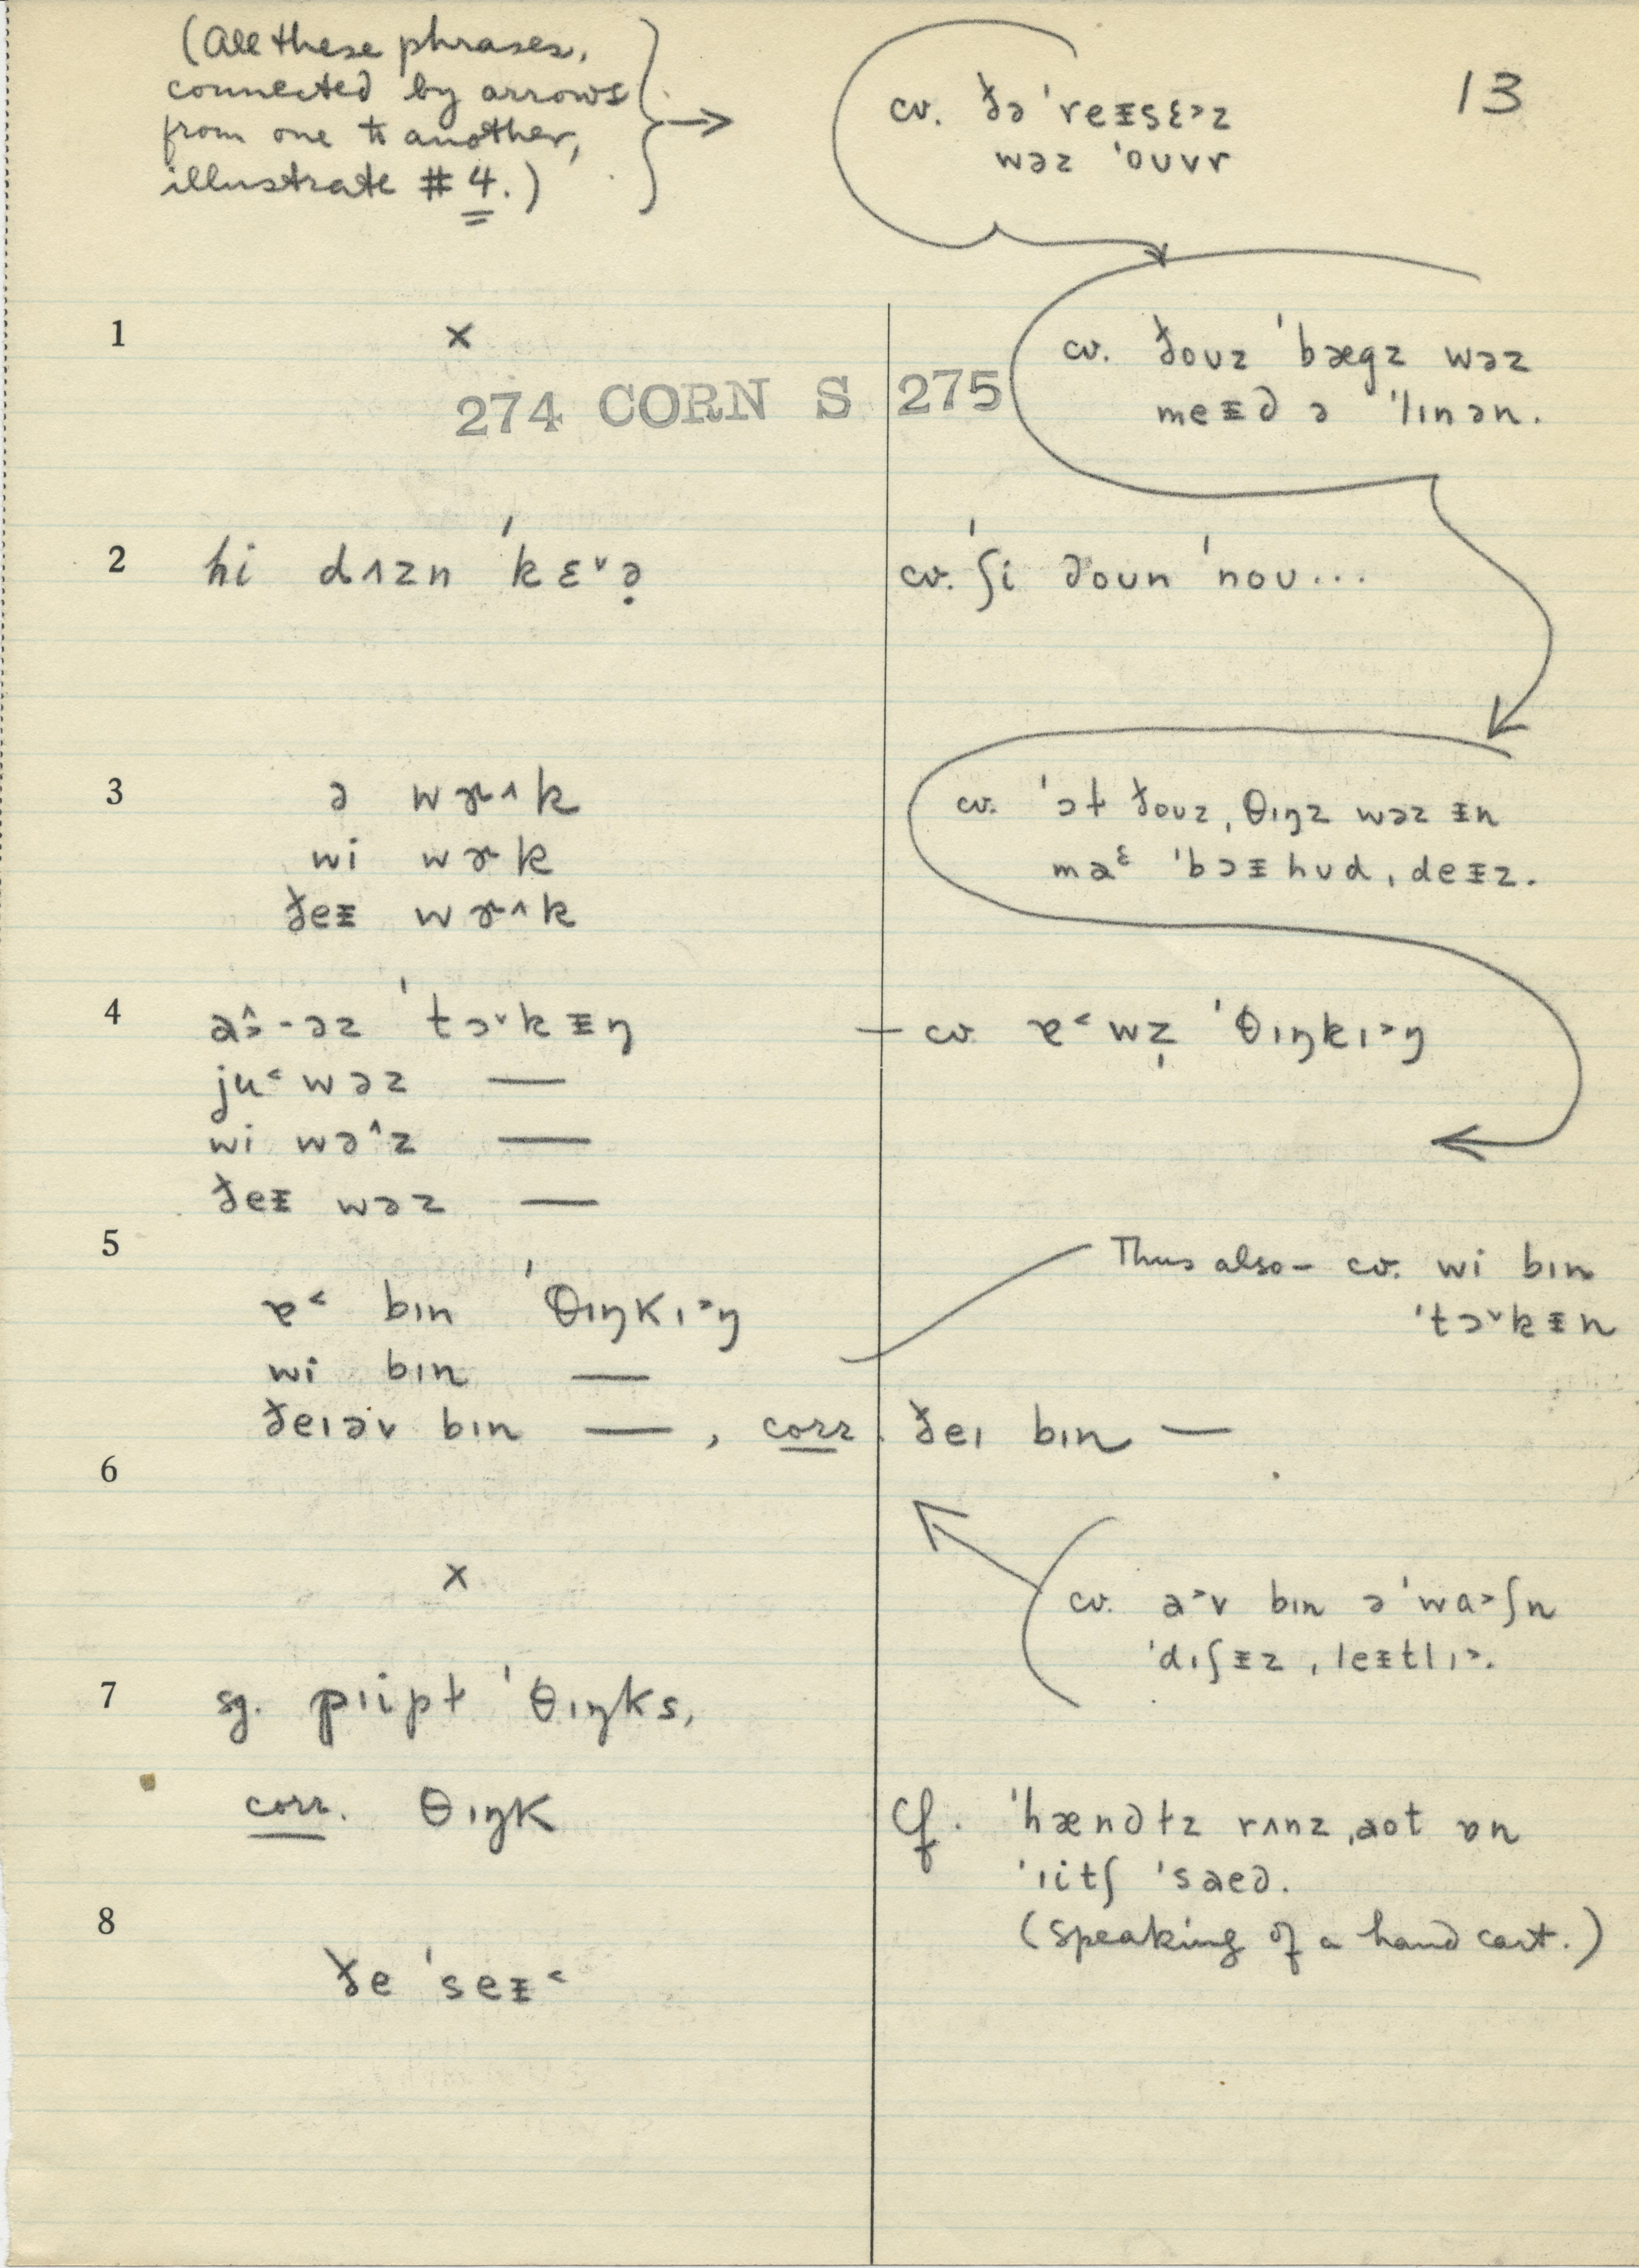 (All these phrases,
connected by arrows
from one to another,
illustrate #4.)
13
cv. ðə ˈreᵻsɛ˃z
wəz ˈouvr
1
×
274 CORN S 275
cv. ðouz ˈbægz wəz
meᵻd ə ˈlɪnən.
2
hi dʌzn ˈkɛ˅ə̣
cv. ˈʃi doun ˈnou...
3
ə wɚ˄k
wi wɚk
ðeᵻ wɚ˄k
cv. ˈɔɫ ðouz ˌθɪŋz wəz ᵻn
ˈbɔᵻhud ˌdeᵻz.
4
-əz ˈtɔ˅kᵻŋ
ju˂ wəz —
wi wə˄z —
ðeᵻ wəz —
— cv. ɐ˂ wz̩ ˈθɪŋkɪ˃ŋ
5
ɐ˂ bɪn ˈθɪŋkɪ˃ŋ
wi bɪn —
ðeɪəv bɪn —, corr. ðeɪ bɪn —
Thus also – cv. wi bɪn
ˈtɔ˅kᵻn
6
×
cv. a˃v bɪn əˈwa˃ʃn
ˈdɪʃᵻz ˌleᵻtlɪ˃.
7
sg. pɪipɫ ˈθɪŋks,
corr. θɪŋk
Cf. ˈhændɫz rʌnz ˌaot ɒn
ˈɪitʃ ˈsaed.
(speaking of a hand cart.)
8
ðe ˈseᵻ˂